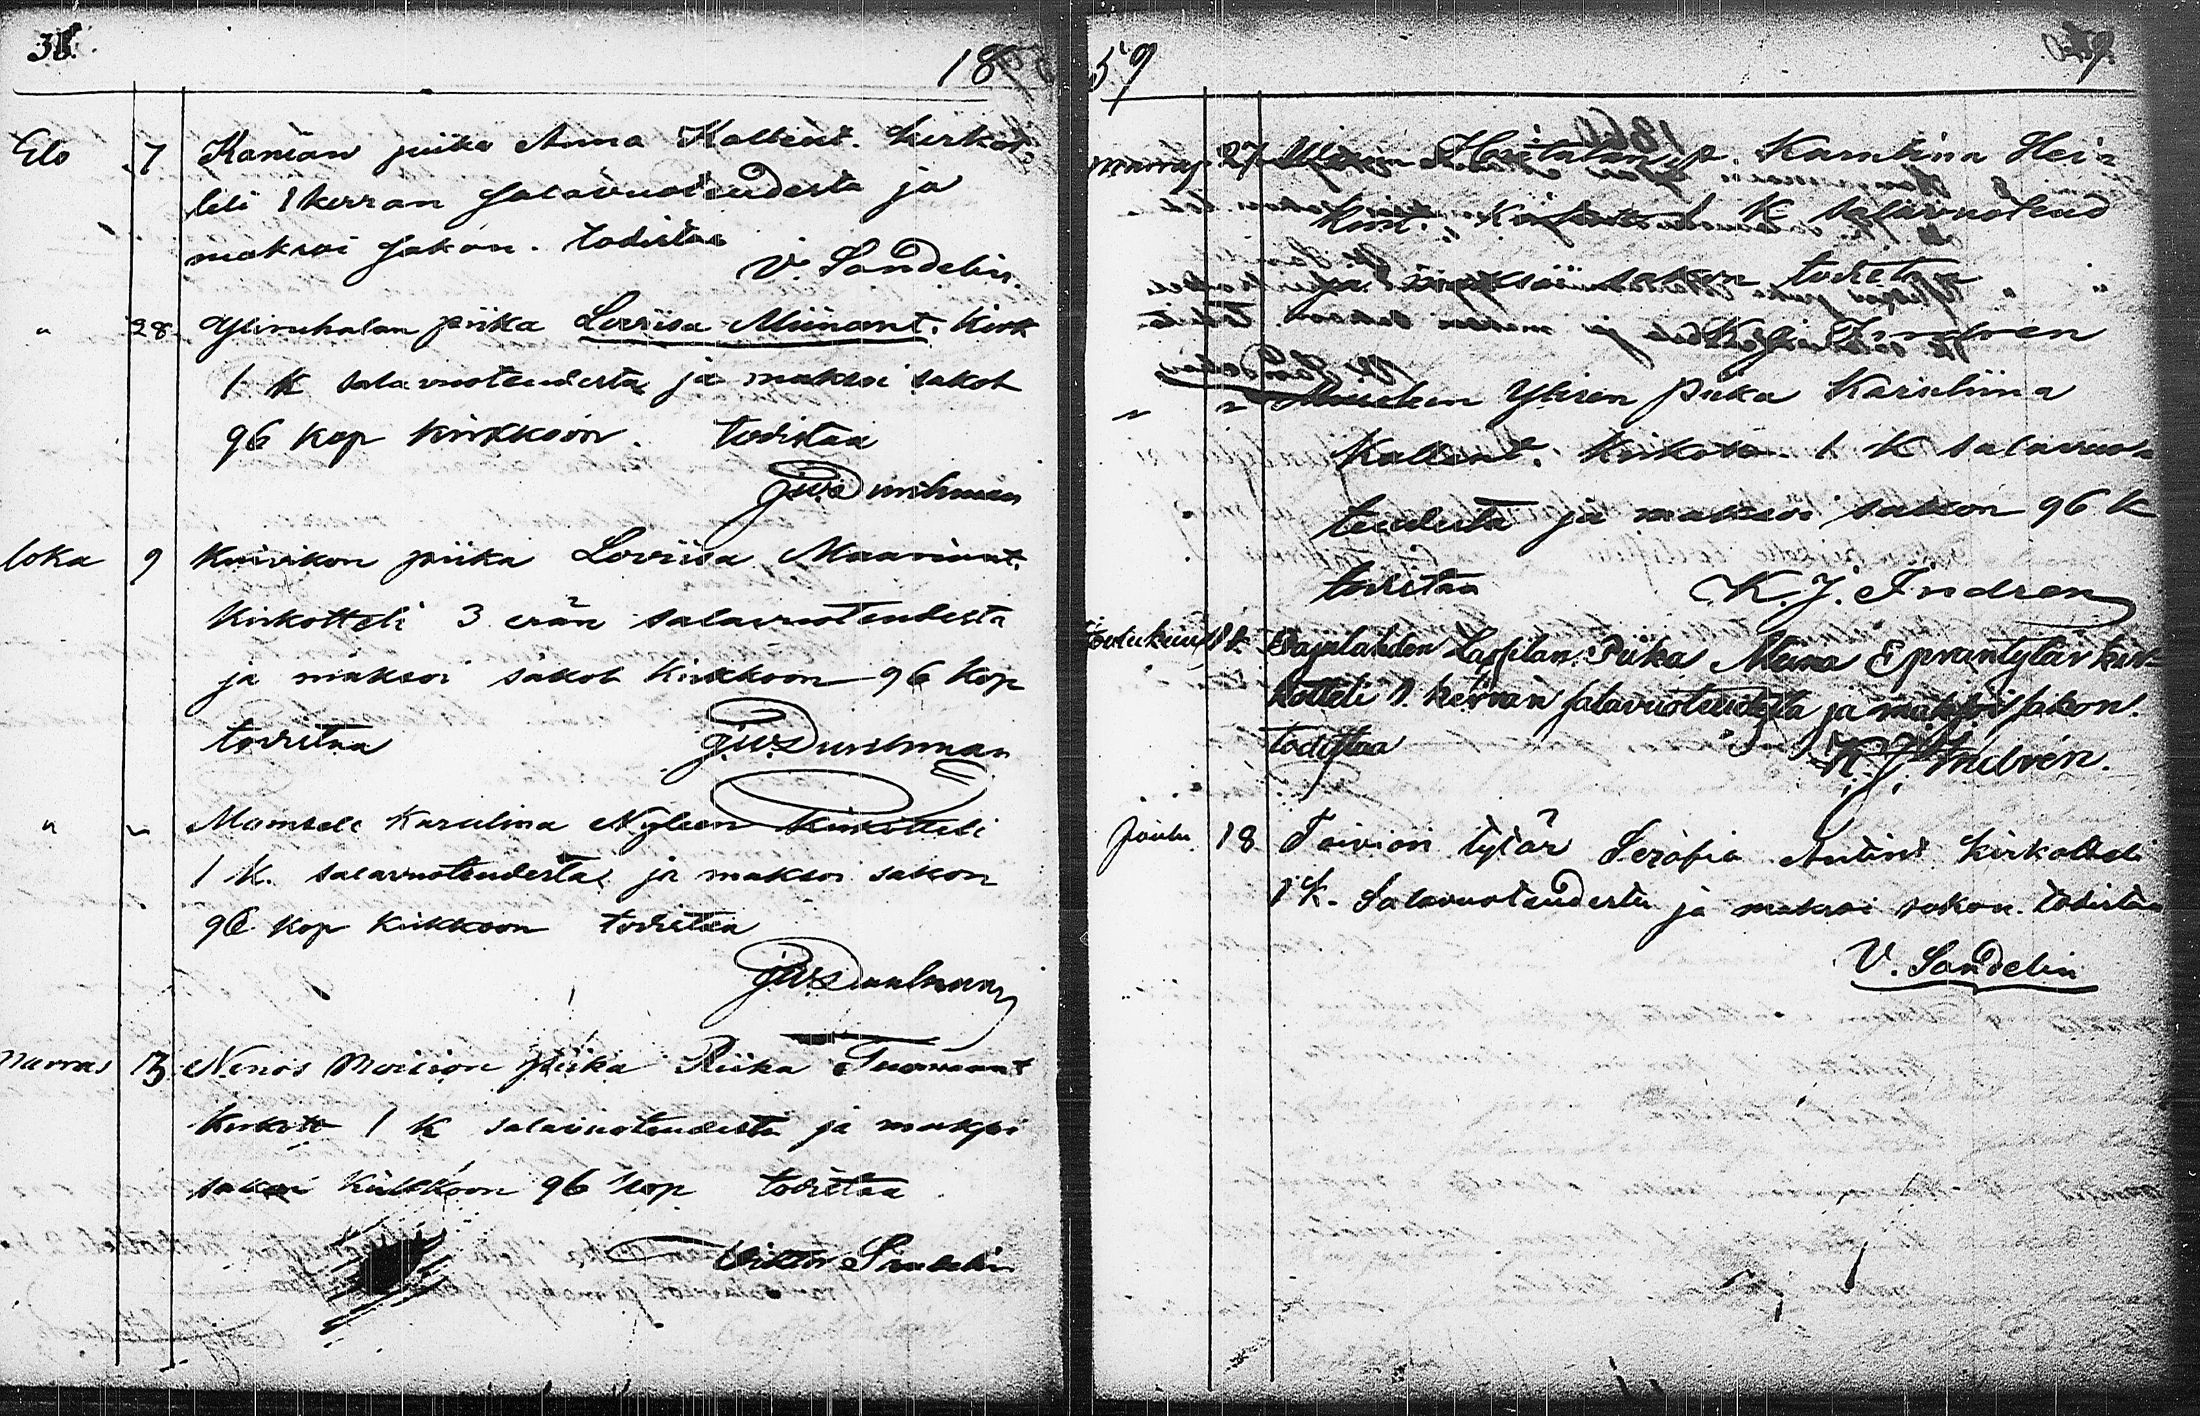 38.
1859
Elo 7 Kanian piika Anna Kallent. kirkot
teli 1 kerran salavuoteudesta ja
maksoi sakon. todistaa
V. Sandelin.
" 28 piika Loviisa Miinant. Kirk
1 K salavuoteudesta ja maksoi sakot
96 kop kirkkoon. todistaa
J.W. Durchman
loka 9 Kuivikon piika Loviisa Maarinat.
Kirkotteli 3 erän salavuoteudesta
ja maksoi sakot kirkkoon 96 kop
todistaa J.W. Durchman
" " Mamseli Karulina Nyleen kirkotteli
1 K. salavuoteudesta ja maksoi sakon
96 kop kirkkoon todistaa
J.W. Durchman
marras 13 piika Riika Tuomaant
kirkoto 1 K salavuoteudesta ja makspi
sakon kirkkoon 96 kop todistaa
Viktor Sandelin
marras 27 Hietalan p. Karuliina Hei
kint. 1 K salavuoteud
ja maksoi sakon todistaa
K J Indren
" " Ylisen piika Karuliina
Kallent. Kirkoto 1 K salavuo
teudesta ja maksoi sakon 96 K
todistaa K. J. Indren
Joulukuus Lassilan Piika Miina Eprantytär kir-
kotteli 1. kerran salavuoteudesta ja maksoi sakon.
todistaa K J Indrén.
joulu 18 Toivion tytär Serafia Antint kirkotteli
1 K. Salavuoteudesta ja maksoi sakon. todistaa
V. Sandelin